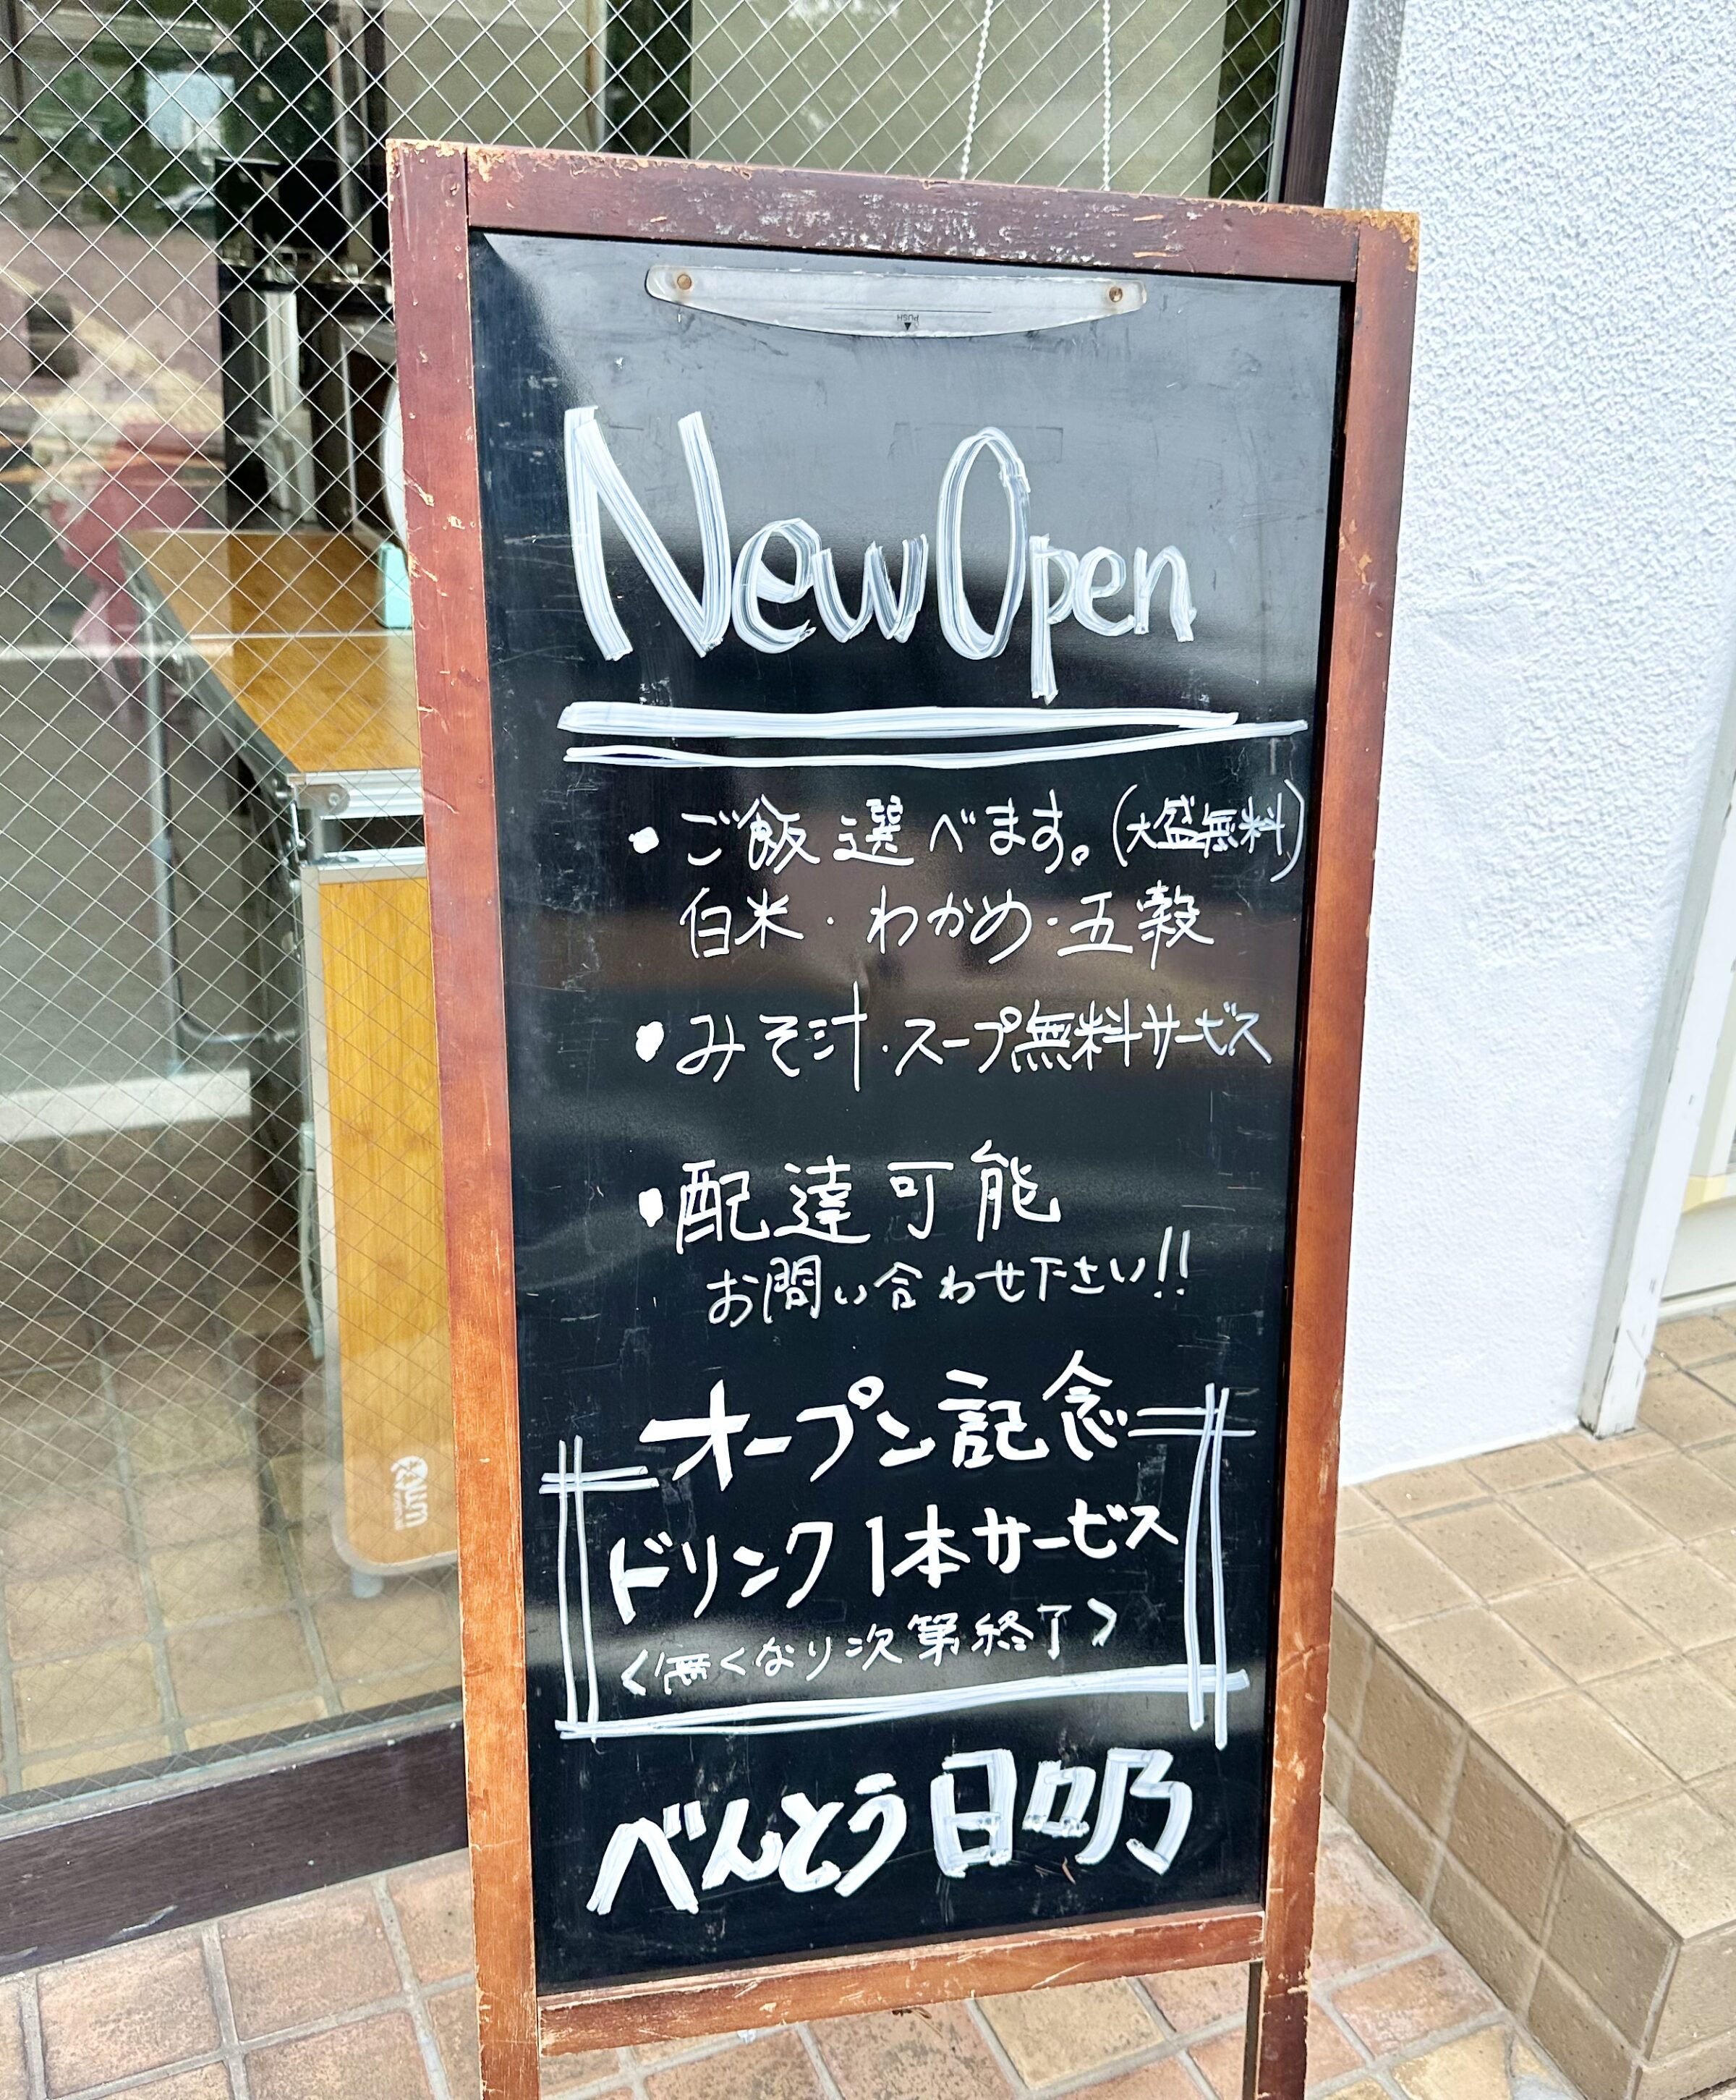 PUSH
New Open
・ご飯選べます。(大盛無料)
白米・わかめ・五穀
・みそ汁・スープ無料サービス
・配達可能
お問い合わせ下さい!!
オープン記念
ドリンク1本サービス
<無くなり次第終了>
べんとう日々乃